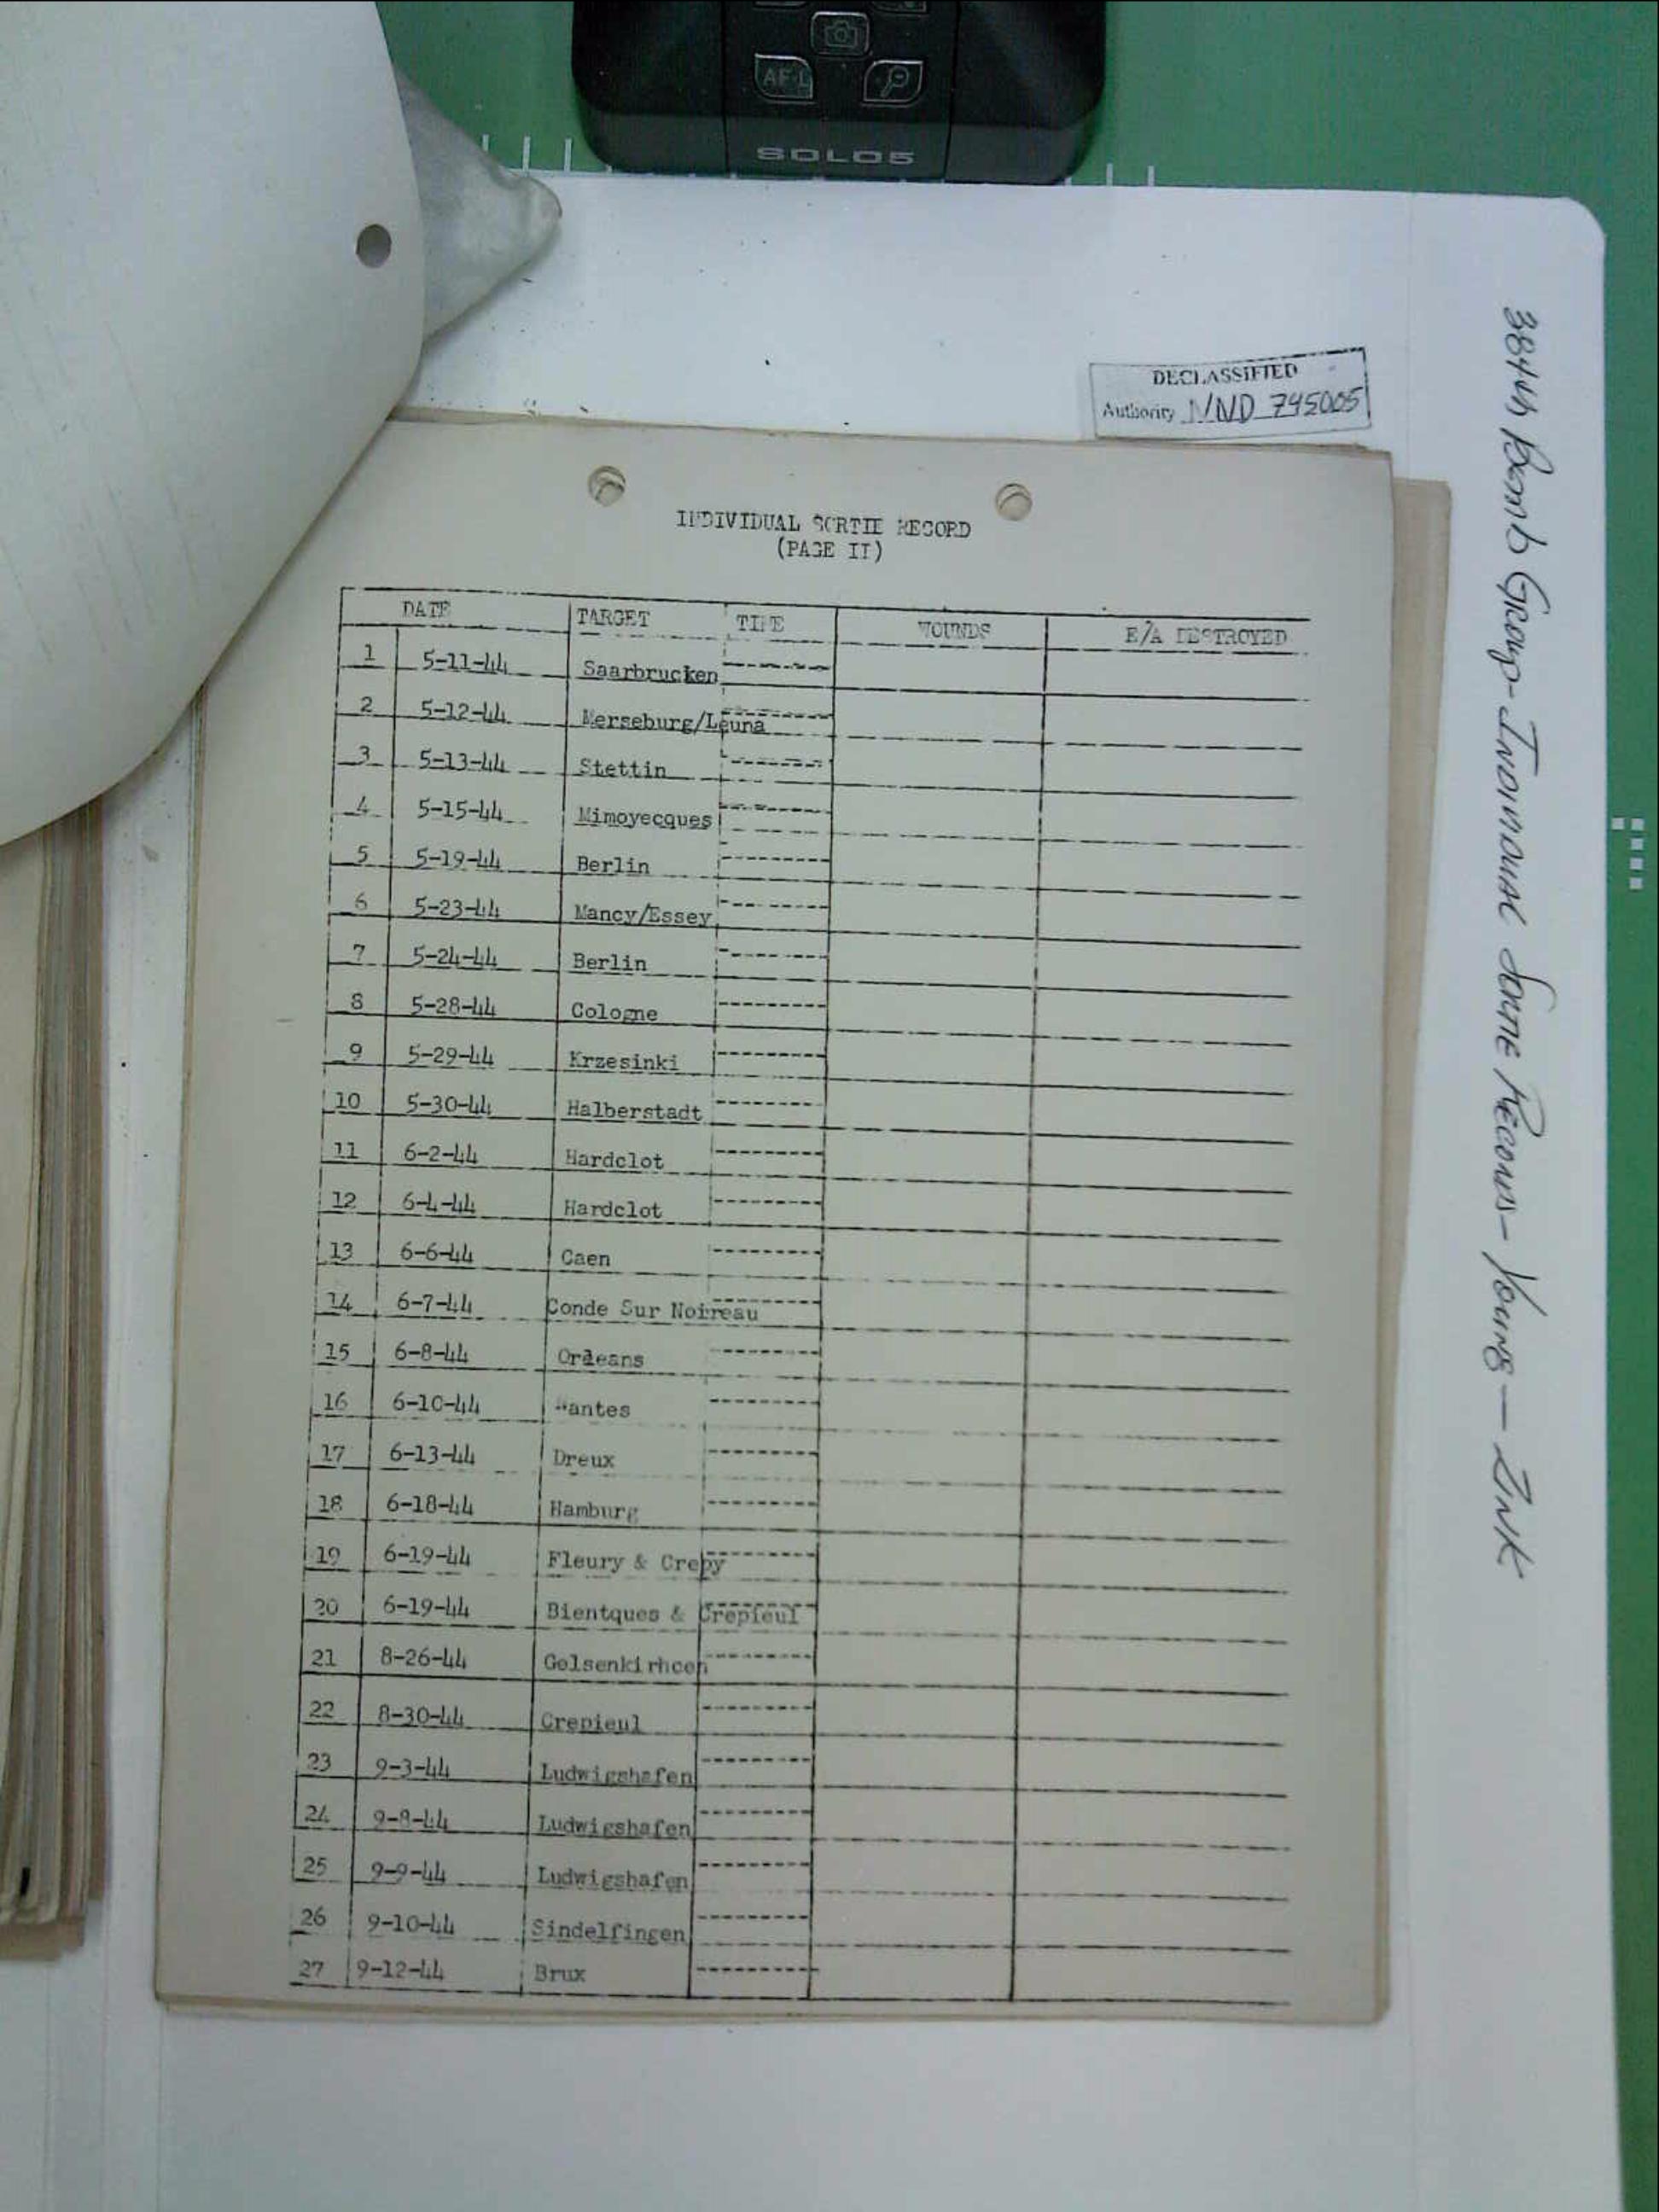 AF-L
SOLO5
DECLASSIFIED
Authority NND 745005
384th Bomb Group - Individual Sortie Records - Young — Zink
INDIVIDUAL SORTIE RECORD
(PAGE II)
DATE TARGET TIME WOUNDS E/A DESTROYED
1 5-11-44 Saarbrucken ---------
2 5-12-44 Merseburg/Leuna ---------
3 5-13-44 Stettin ---------
4 5-15-44 Mimoyecques ---------
5 5-19-44 Berlin ---------
6 5-23-44 Nancy/Essey ---------
7 5-24-44 Berlin ---------
8 5-28-44 Cologne ---------
9 5-29-44 Krzesinki ---------
10 5-30-44 Halberstadt ---------
11 6-2-44 Hardclot ---------
12 6-4-44 Hardclot ---------
13 6-6-44 Caen ---------
14 6-7-44 Conde Sur Noireau ---------
15 6-8-44 Orleans ---------
16 6-10-44 Nantes ---------
17 6-13-44 Dreux ---------
18 6-18-44 Hamburg ---------
19 6-19-44 Fleury & Crepy ---------
20 6-19-44 Bientques & Crepieul ---------
21 8-26-44 Gelsenkirhcen ---------
22 8-30-44 Crepieul ---------
23 9-3-44 Ludwigshafen ---------
24 9-8-44 Ludwigshafen ---------
25 9-9-44 Ludwigshafen ---------
26 9-10-44 Sindelfingen ---------
27 9-12-44 Brux ---------